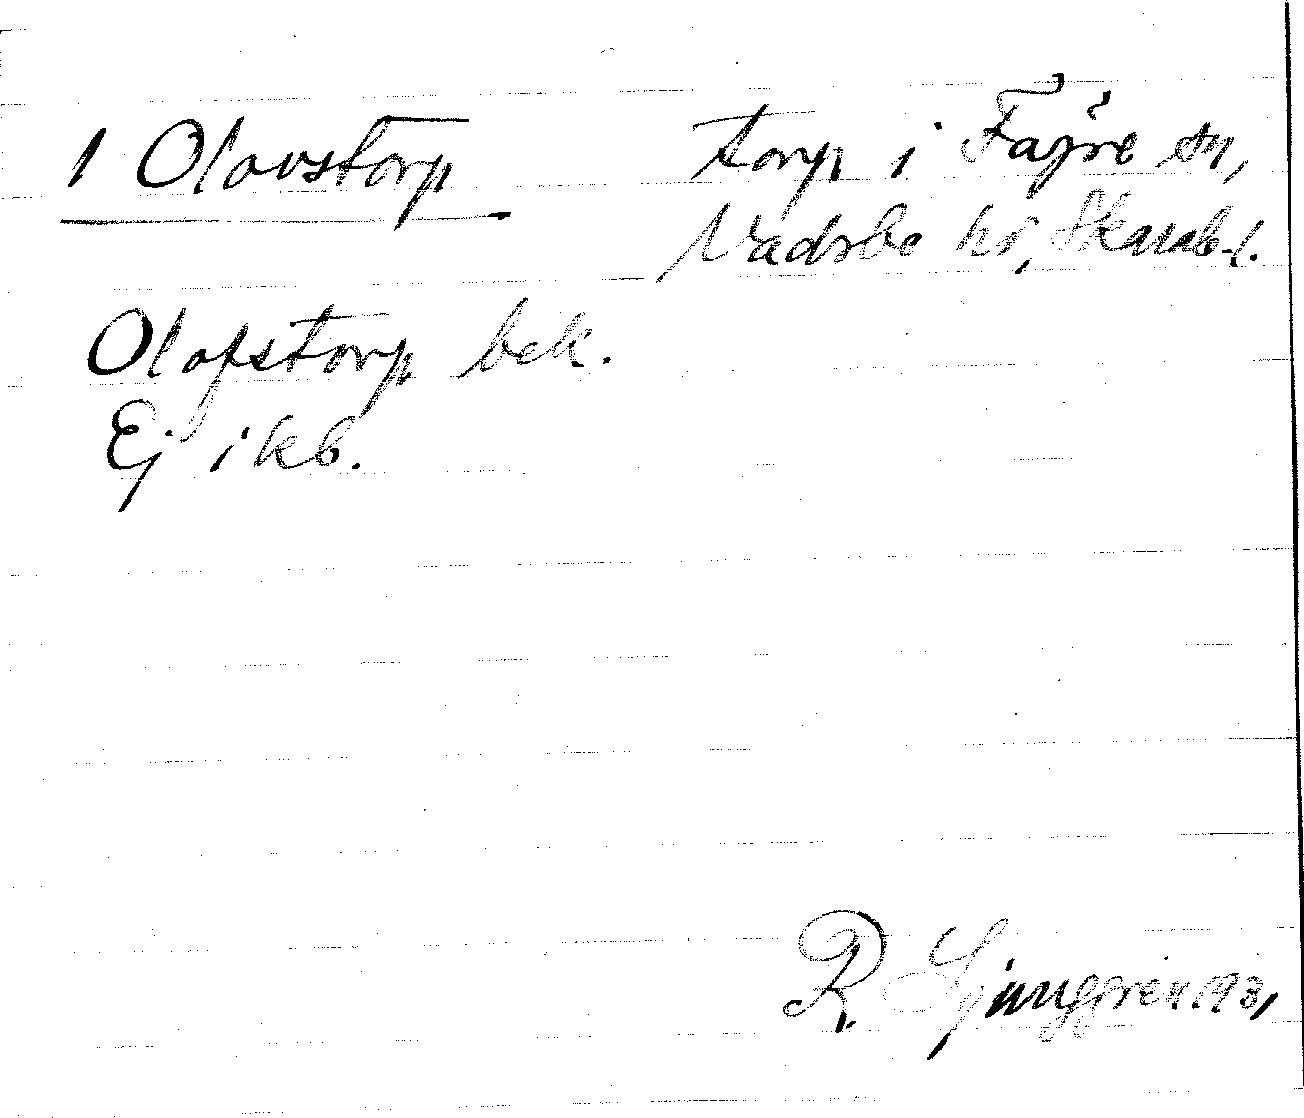 1 Olovstorp
torp i Fägre sn,
Vadsbo hd, Skarab. l.
Olofstorp bek.
Ej i kb.
R. Ljunggren 1931